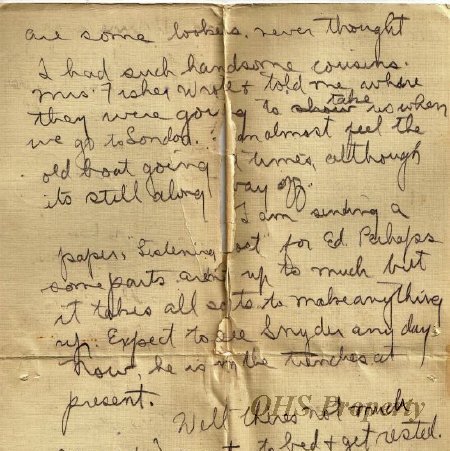 are some lookers. never thought
I had such handsome cousins.
Mrs. Fisher wrote & told me where
they were going to show take us when
we go to London. I can almost feel the
old boat going times, although
its still a long way off.
I am sending a
paper, "Listening Post" for Ed. Perhaps
some parts aren't up to much but
it takes all sorts to make anything
up. Expect to see Snyder any day
now, he is in the trenches at
present.
Well there's not much
to bed & get rested.
OHS Property